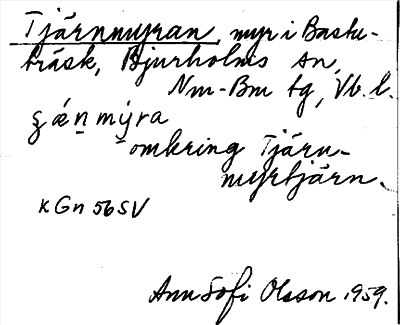 Tjärnmyran, myr i Bastu-
träsk, Bjurholms sn,
Nm-Bm tg, Vb. l.
ʂǽn̠ mýra
omkring Tjärn-
myrtjärn.
K Gn 56 SV
Ann Sofi Olsson 1959.